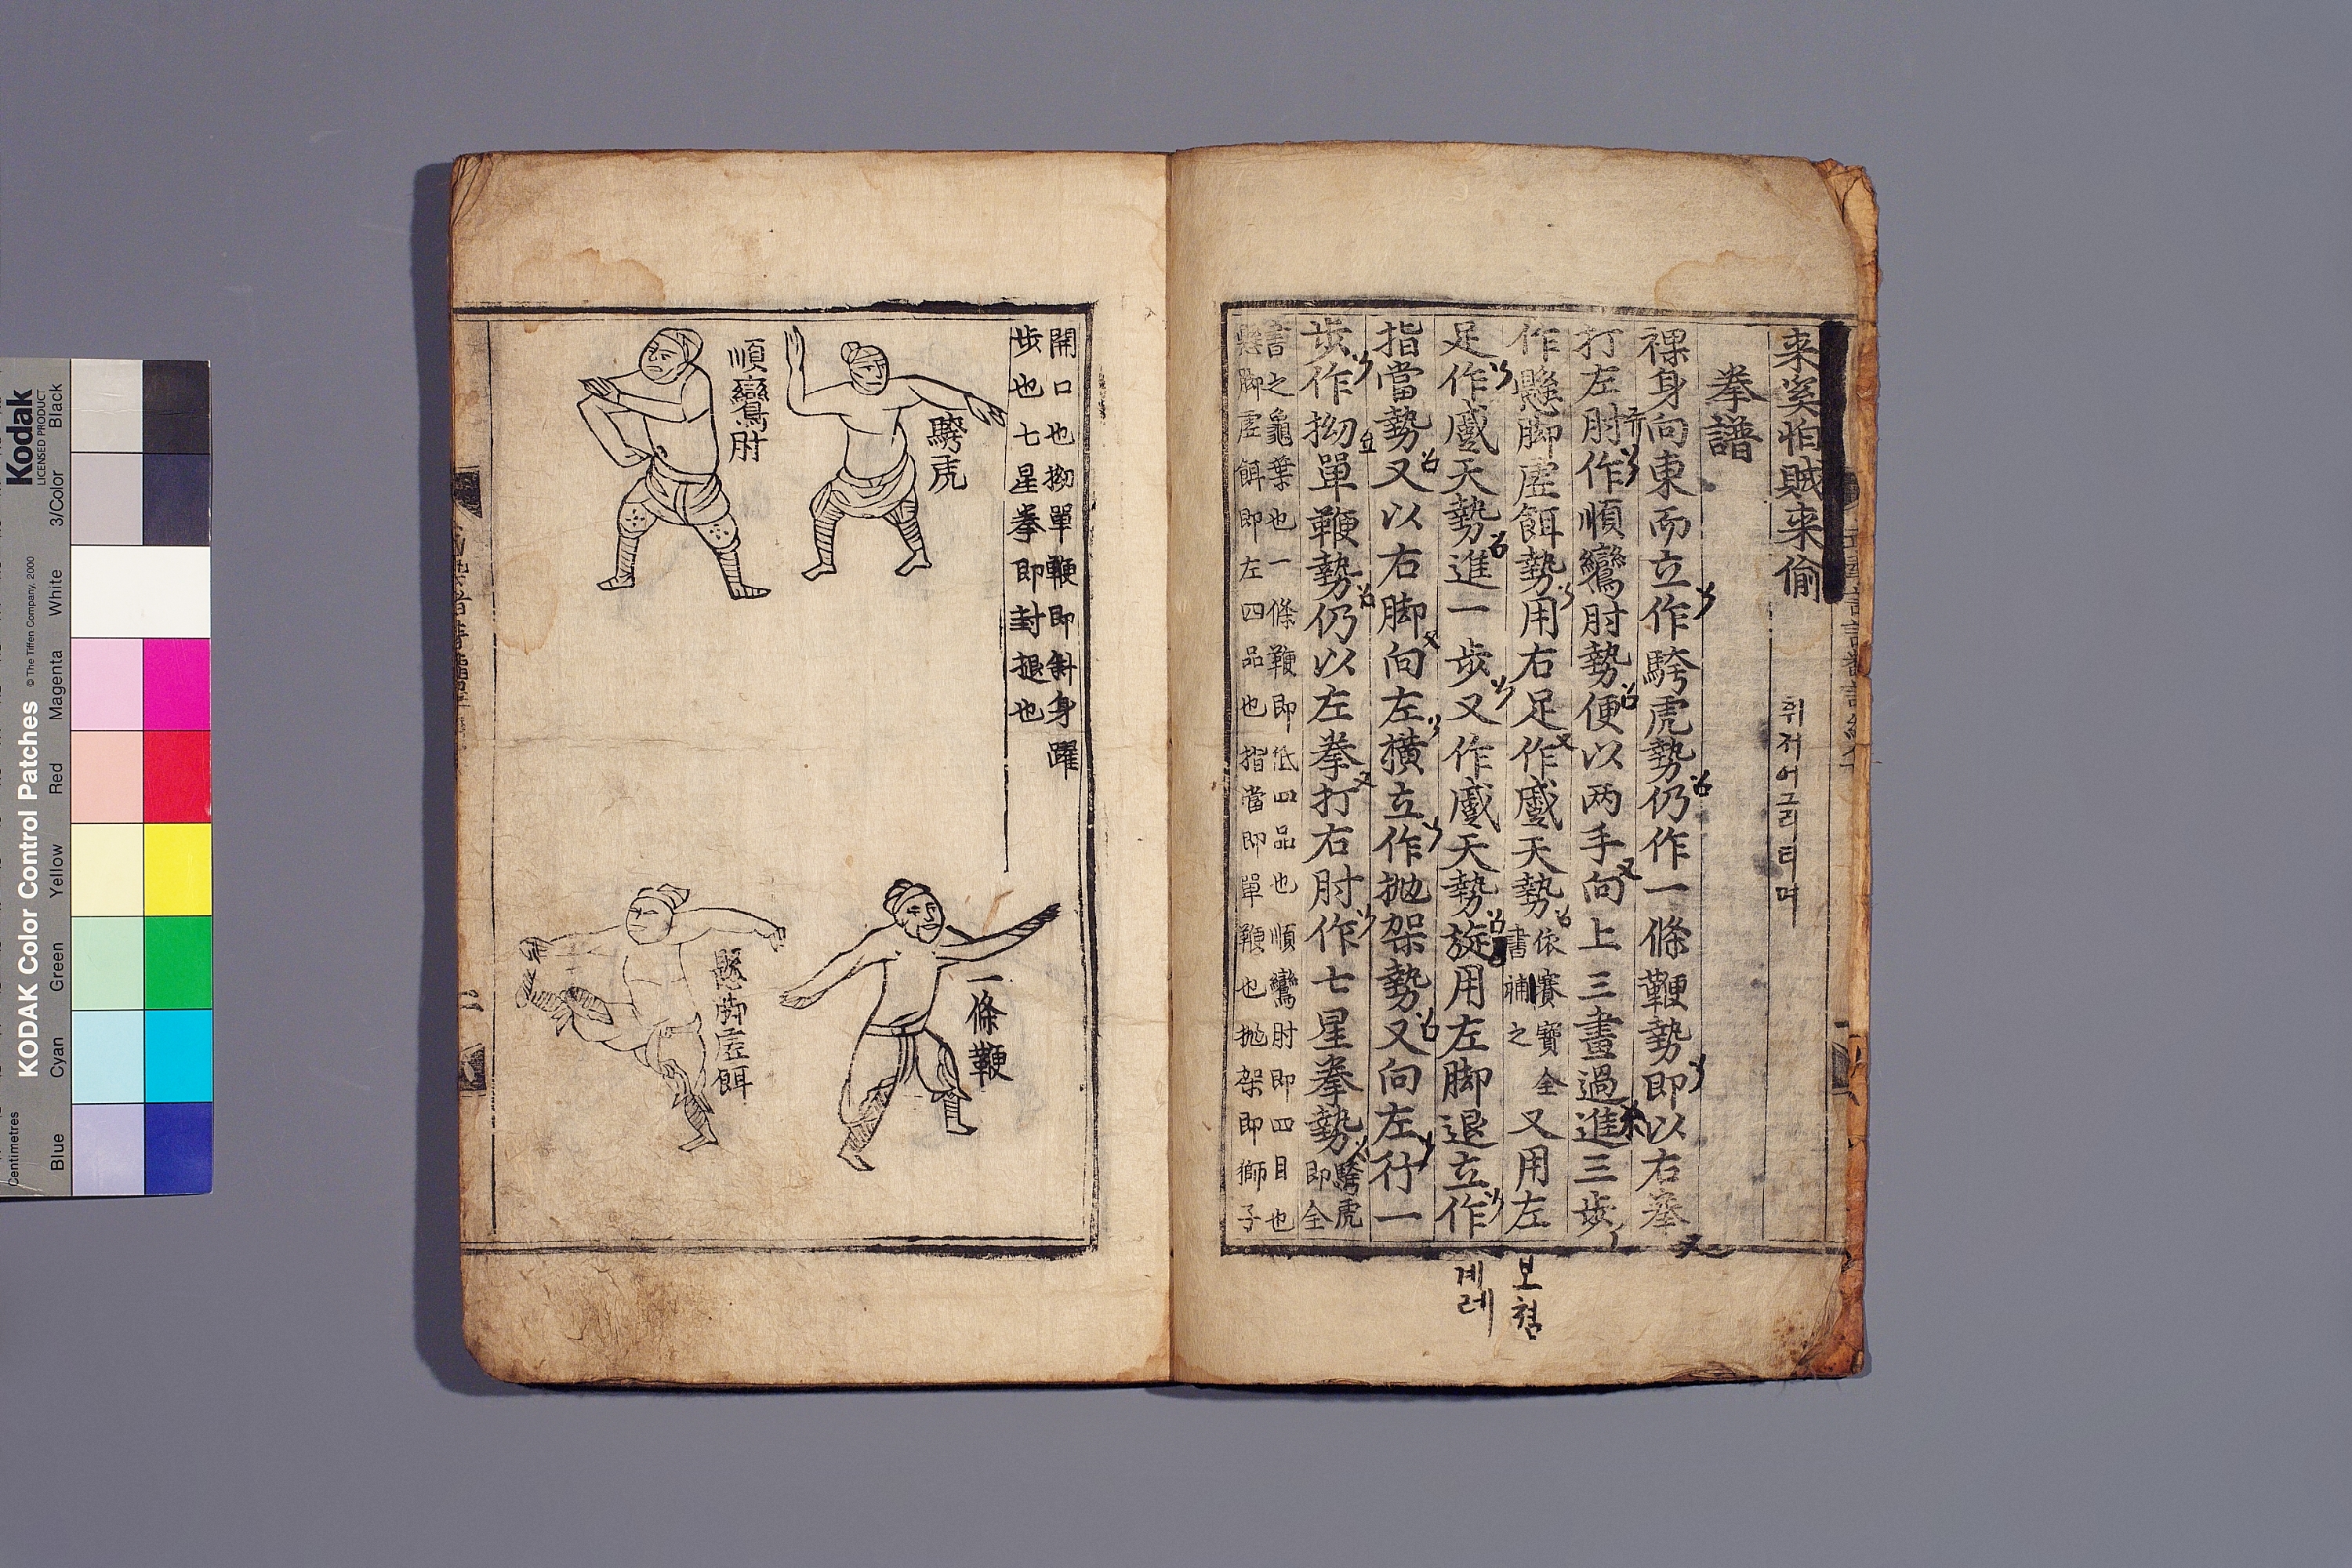 来奕怕賊来偷
휘저어그리티며
拳譜
裸身向東而立作騎虎勢仍作一條鞭勢即以右拳
打左肘作順鸞肘勢便以两手向上三畫過進三歩
作懸脚虛餌勢用右足作戲天勢依賽寶全書補之又用左
足作戲天勢進一歩又作戲天勢旋用左脚退立作
指當勢又以右脚向左横立作抛架勢又向左行一
歩作拗單鞭勢仍以左拳打右肘作七星拳勢騎虎即全
書之龜葉也一條鞭即低四品也順鸞肘即四目也
懸脚虛餌即左四品也指當即單鞭也抛架即獅子
보혐
계례
開口也拗單鞭即斜身躍
歩也七星拳即封㨙也
騎虎
順鸞肘
一條鞭
懸脚虛餌
Kodak
LICENSED PRODUCT
KODAK Color Control Patches
© The Tiffen Company, 2000
Centimetres
Blue
Cyan
Green
Yellow
Red
Magenta
White
3/Color
Black